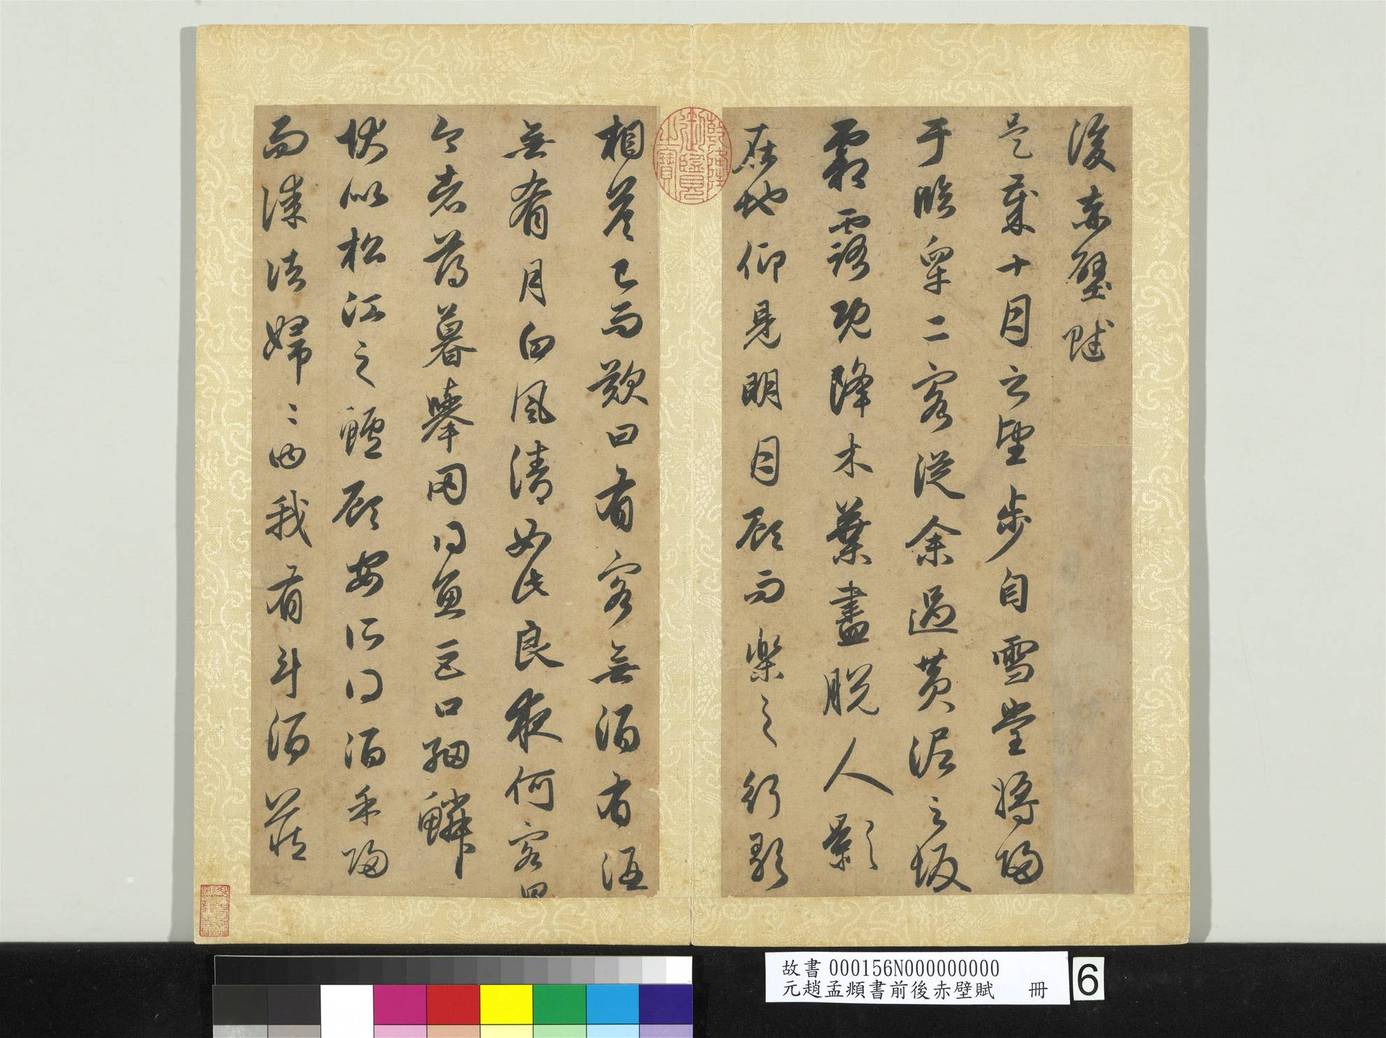 後赤壁賦
是歲十月之望步自雪堂將歸
于臨皋二客從余過黃泥之坂
霜露既降木葉盡脫人影
在地仰見明月顧而樂之行歌
相答已而歎曰有客無酒有酒
無肴月白風清如此良夜何客曰
今者薄暮舉网得魚巨口細鱗
状似松江之鱸顧安所得酒乎歸
而謀諸婦〻曰我有斗酒藏
故書000156N000000000
元趙孟頫書前後赤壁賦 冊
6